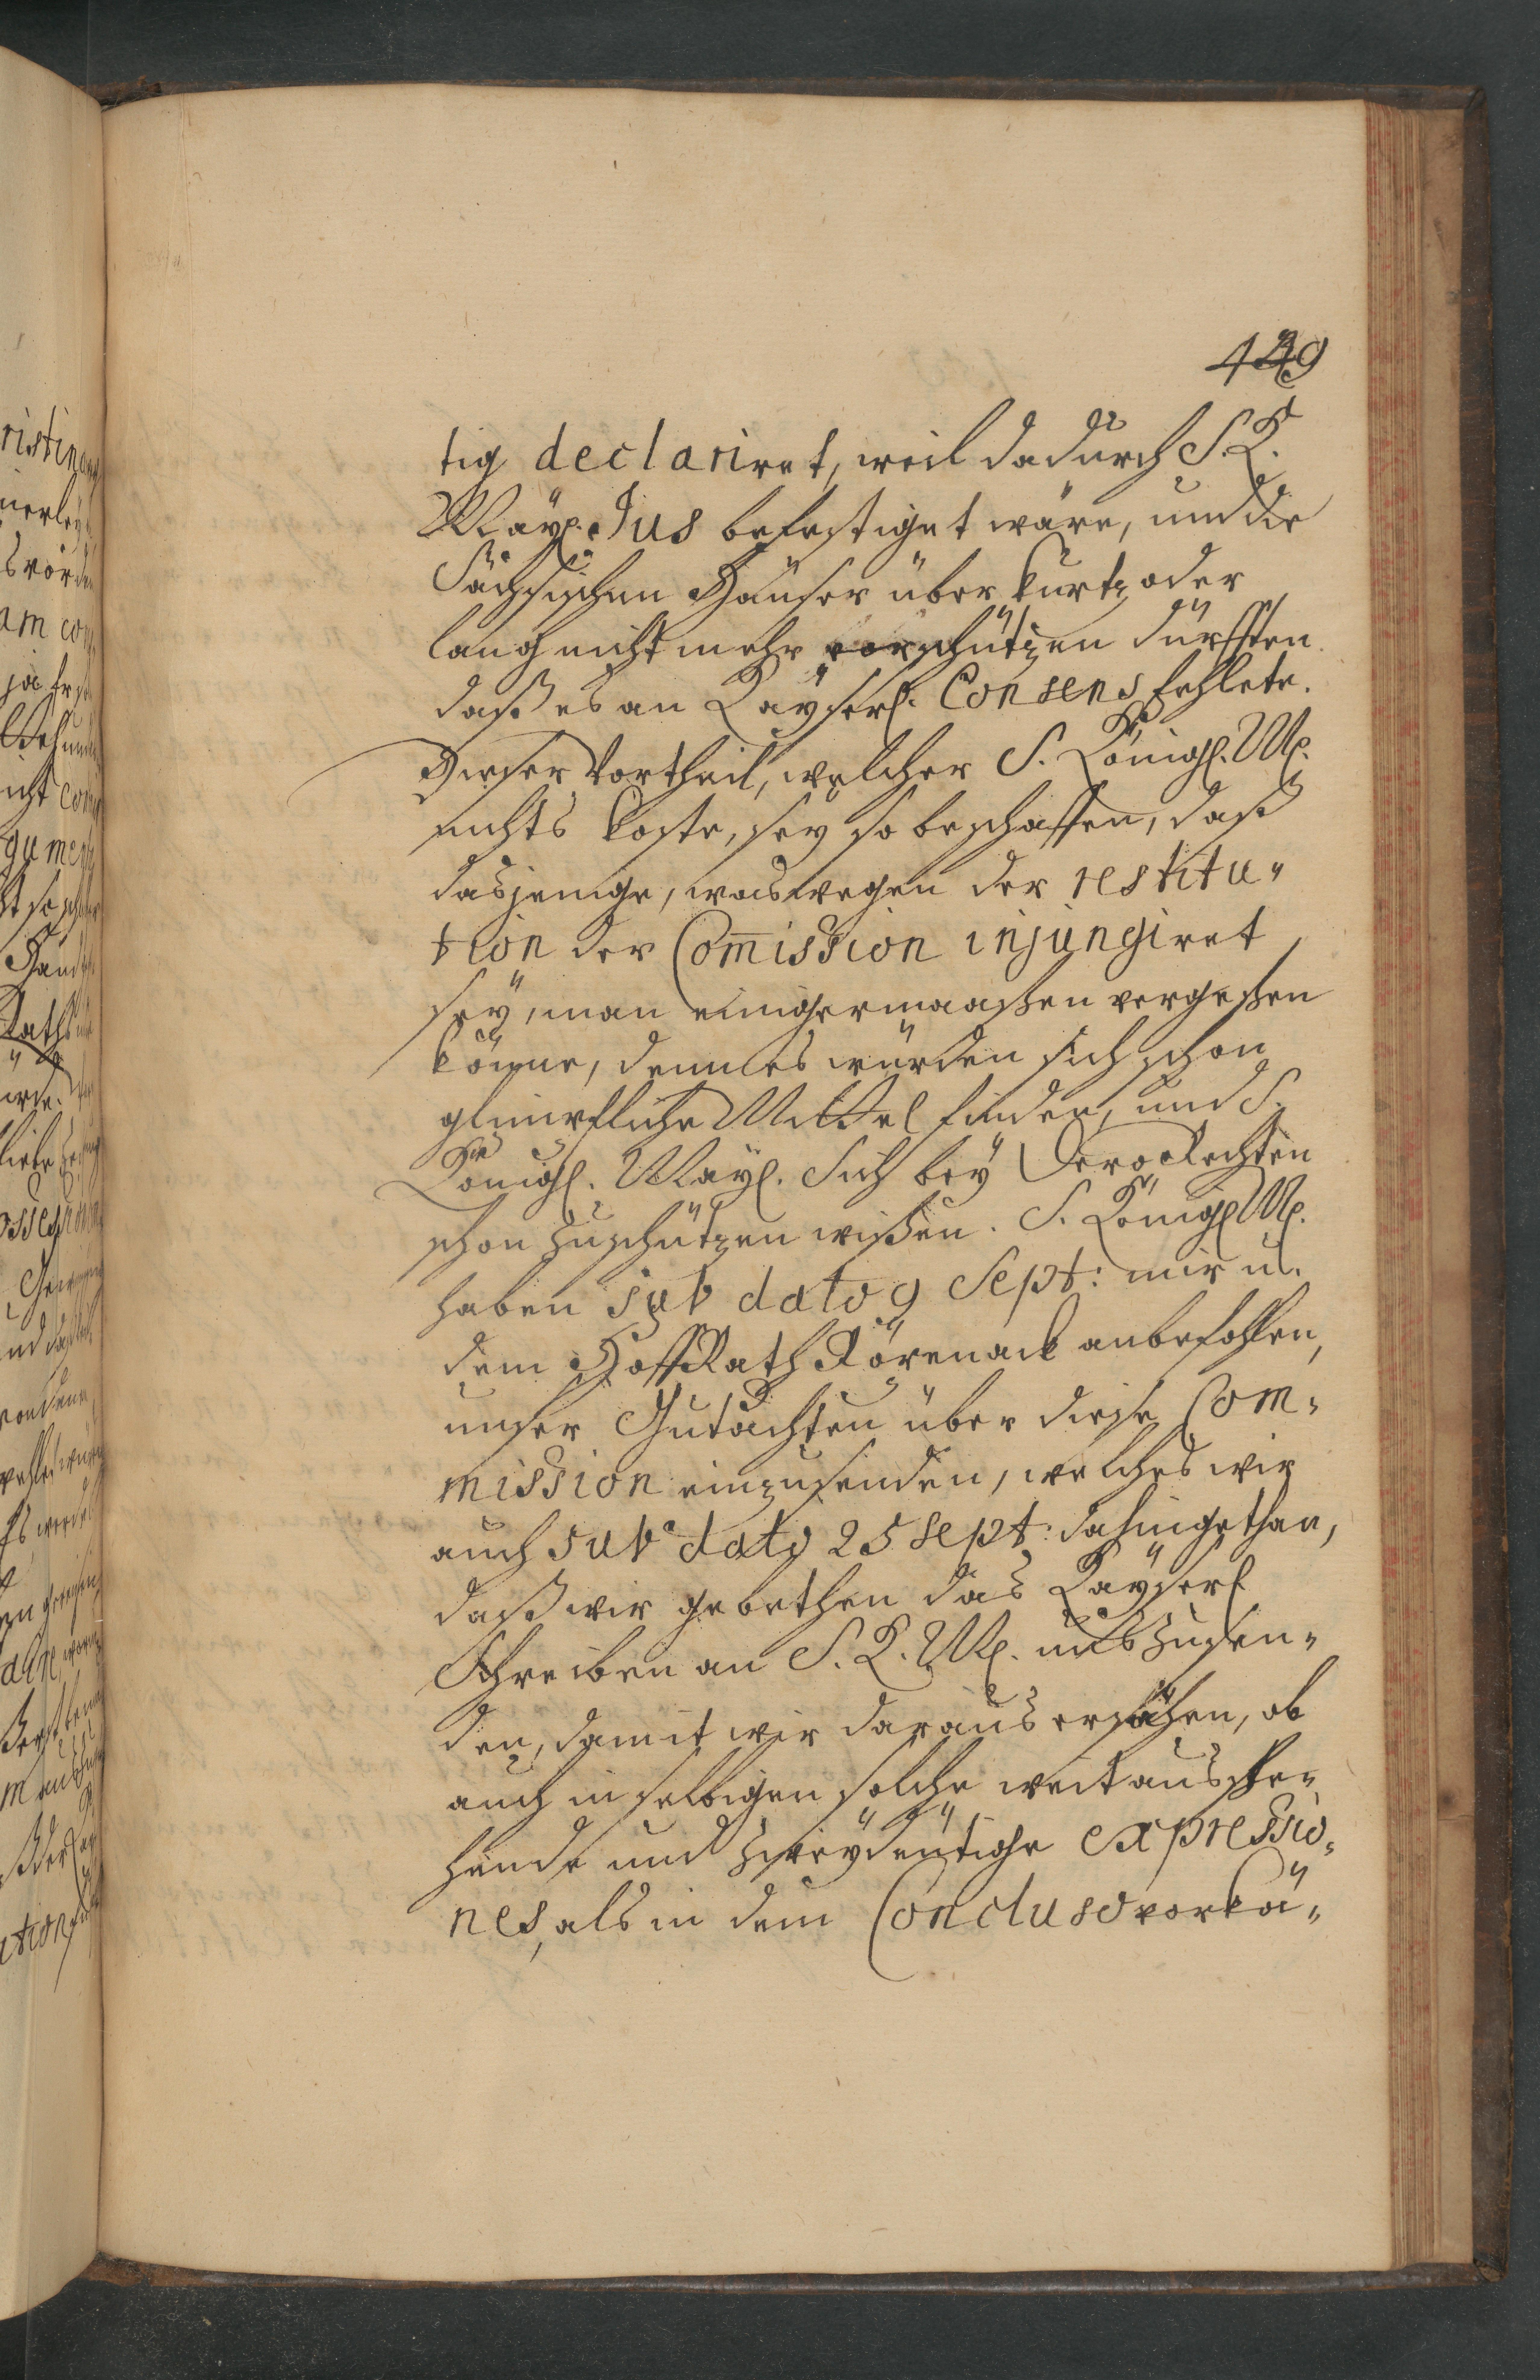 429
tig declariret, weil dadurch S. K.
Mayt. Jus befestiget wäre, und die
Sächsischen Häuser über kurtz oder
lang nicht mehr vorschützen dürfften
daß es an Kayserl. Consens fehlete.
Dieser Vortheil, welcher S. Königl. Mt.
nichts koste, sey so beschaffen, daß
dasjenige, was wegen der restitu-
tion der Com̅ission injungiret
sey, man einigermaaßen vergeßen
könne, denn es würden sich schon
glimpfliche Mittel finden, und S.
Königl. Mayt. Sich bey Dero Rechten
schon zu schützen wißen. S. Königl. Mt.
haben sub dato 9 Sept: mir u.
dem HoffRath Körenack anbefohlen,
unser Gutachten über diese Com-
mission einzusenden, welches wir
auch sub dato 25 Sept: dahin gethan,
daß wir gebethen das Kayserl
Schreiben an S. K. Mt. uns zu sen-
den, damit wir daraus ersähen, ob
auch in selbigen solche weit ausse-
hende und zweydeutige expressio-
nes, als in dem Concluso vorkä-